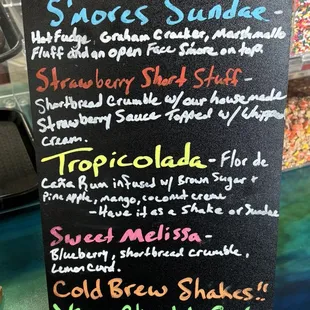 S'mores Sundae -
Hot Fudge, Graham Cracker, Marshmallo
Fluff and an open Face S'more on top.
Strawberry Short Stuff -
Shortbread Crumble w/ our housemade
Strawberry Sauce Topped w/ Whipped
Cream.
Tropicolada - Flor de
Caña Rum infused w/ Brown Sugar +
Pineapple, mango, coconut creme
- Have it as a Shake or Sundae
Sweet Melissa -
Blueberry, shortbread crumble,
Lemon Curd.
Cold Brew Shakes!!